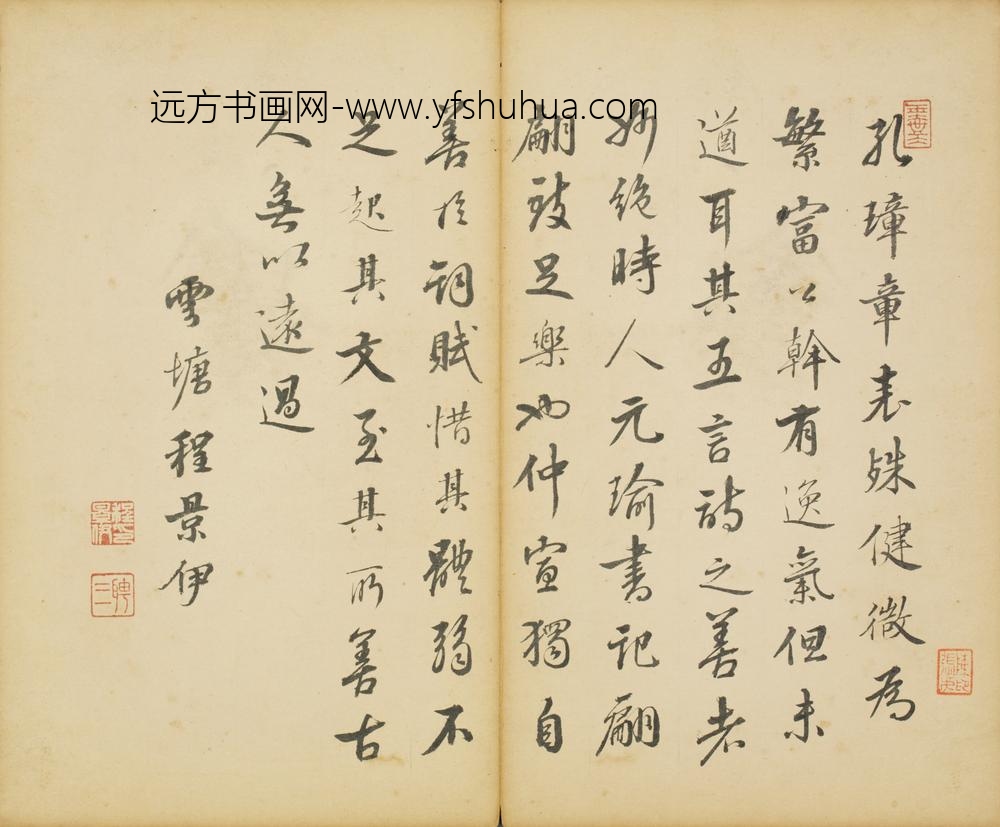 远方书画网-www.yfshuhua.com
孔璋章表殊健微為
繁富公幹有逸氣但未
遒耳其五言詩之善者
妙絕時人元瑜書記翩
翩致足樂也仲宣獨自
善於詞賦惜其體弱不
足起其文至其所善古
人無以遠過
雪塘程景伊